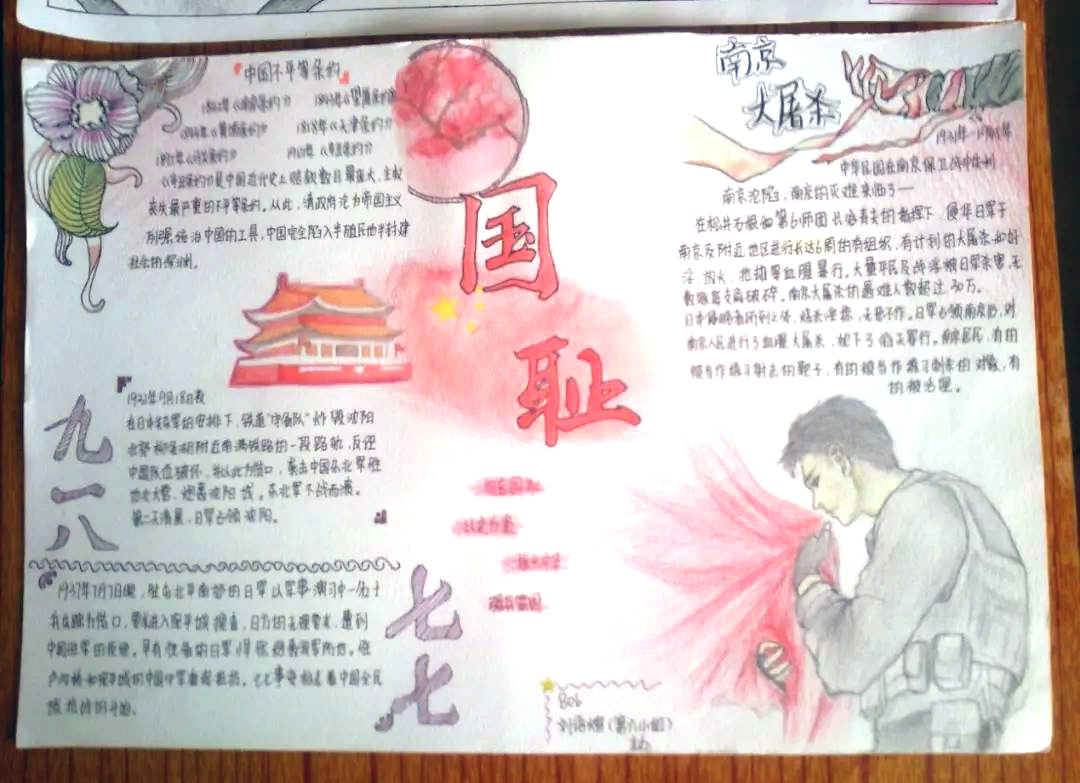 中国不平等条约
1842年《南京条约》 1844年《望厦条约》
1844年《黄埔条约》 1858年《天津条约》
1895年《马关条约》 1901年《辛丑条约》
《辛丑条约》是中国近代史上赔款数目最庞大、主权
丧失最严重的不平等条约。从此,清政府沦为帝国主义
列强统治中国的工具,中国完全陷入半殖民地半封建
社会的深渊。
国
耻
南京
大屠杀
1931年-1945年
中华民国在南京保卫战中失利
南京沦陷,南京的灾难来临了——
在松井石根和第6师团长谷寿夫的指挥下,侵华日军于
南京及附近地区进行长达6周的有组织,有计划的大屠杀和奸
淫、放火、抢劫等血腥暴行。大量平民及战俘被日军杀害,无
数家庭支离破碎。南京大屠杀的遇难人数超过30万。
日军占领南京后,对
南京人民进行了血腥大屠杀,犯下了滔天罪行。南京居民,有的
被当作练习射击的靶子,有的被当作练习刺杀的对象,有
的被活埋。
九一八
1931年9月18日夜
在日本关东军的安排下,铁道“守备队”炸毁沈阳
北郊柳条湖附近南满铁路的一段路轨,反诬
中国队伍破坏,并以此为借口,袭击中国东北军驻
地北大营,炮轰沈阳城。东北军不战而溃。
第二天清晨,日军占领沈阳。
七七
1937年7月7日夜,驻在北平南郊的日军以军事演习中一个士
兵失踪为借口,要求进入宛平城搜查,日方的无理要求,遭到
中国驻军的拒绝。早有准备的日军
卢沟桥和宛平城的中国守军奋起抵抗。七七事变标志着中国全民
族抗战的开始。
806
(第六小组)